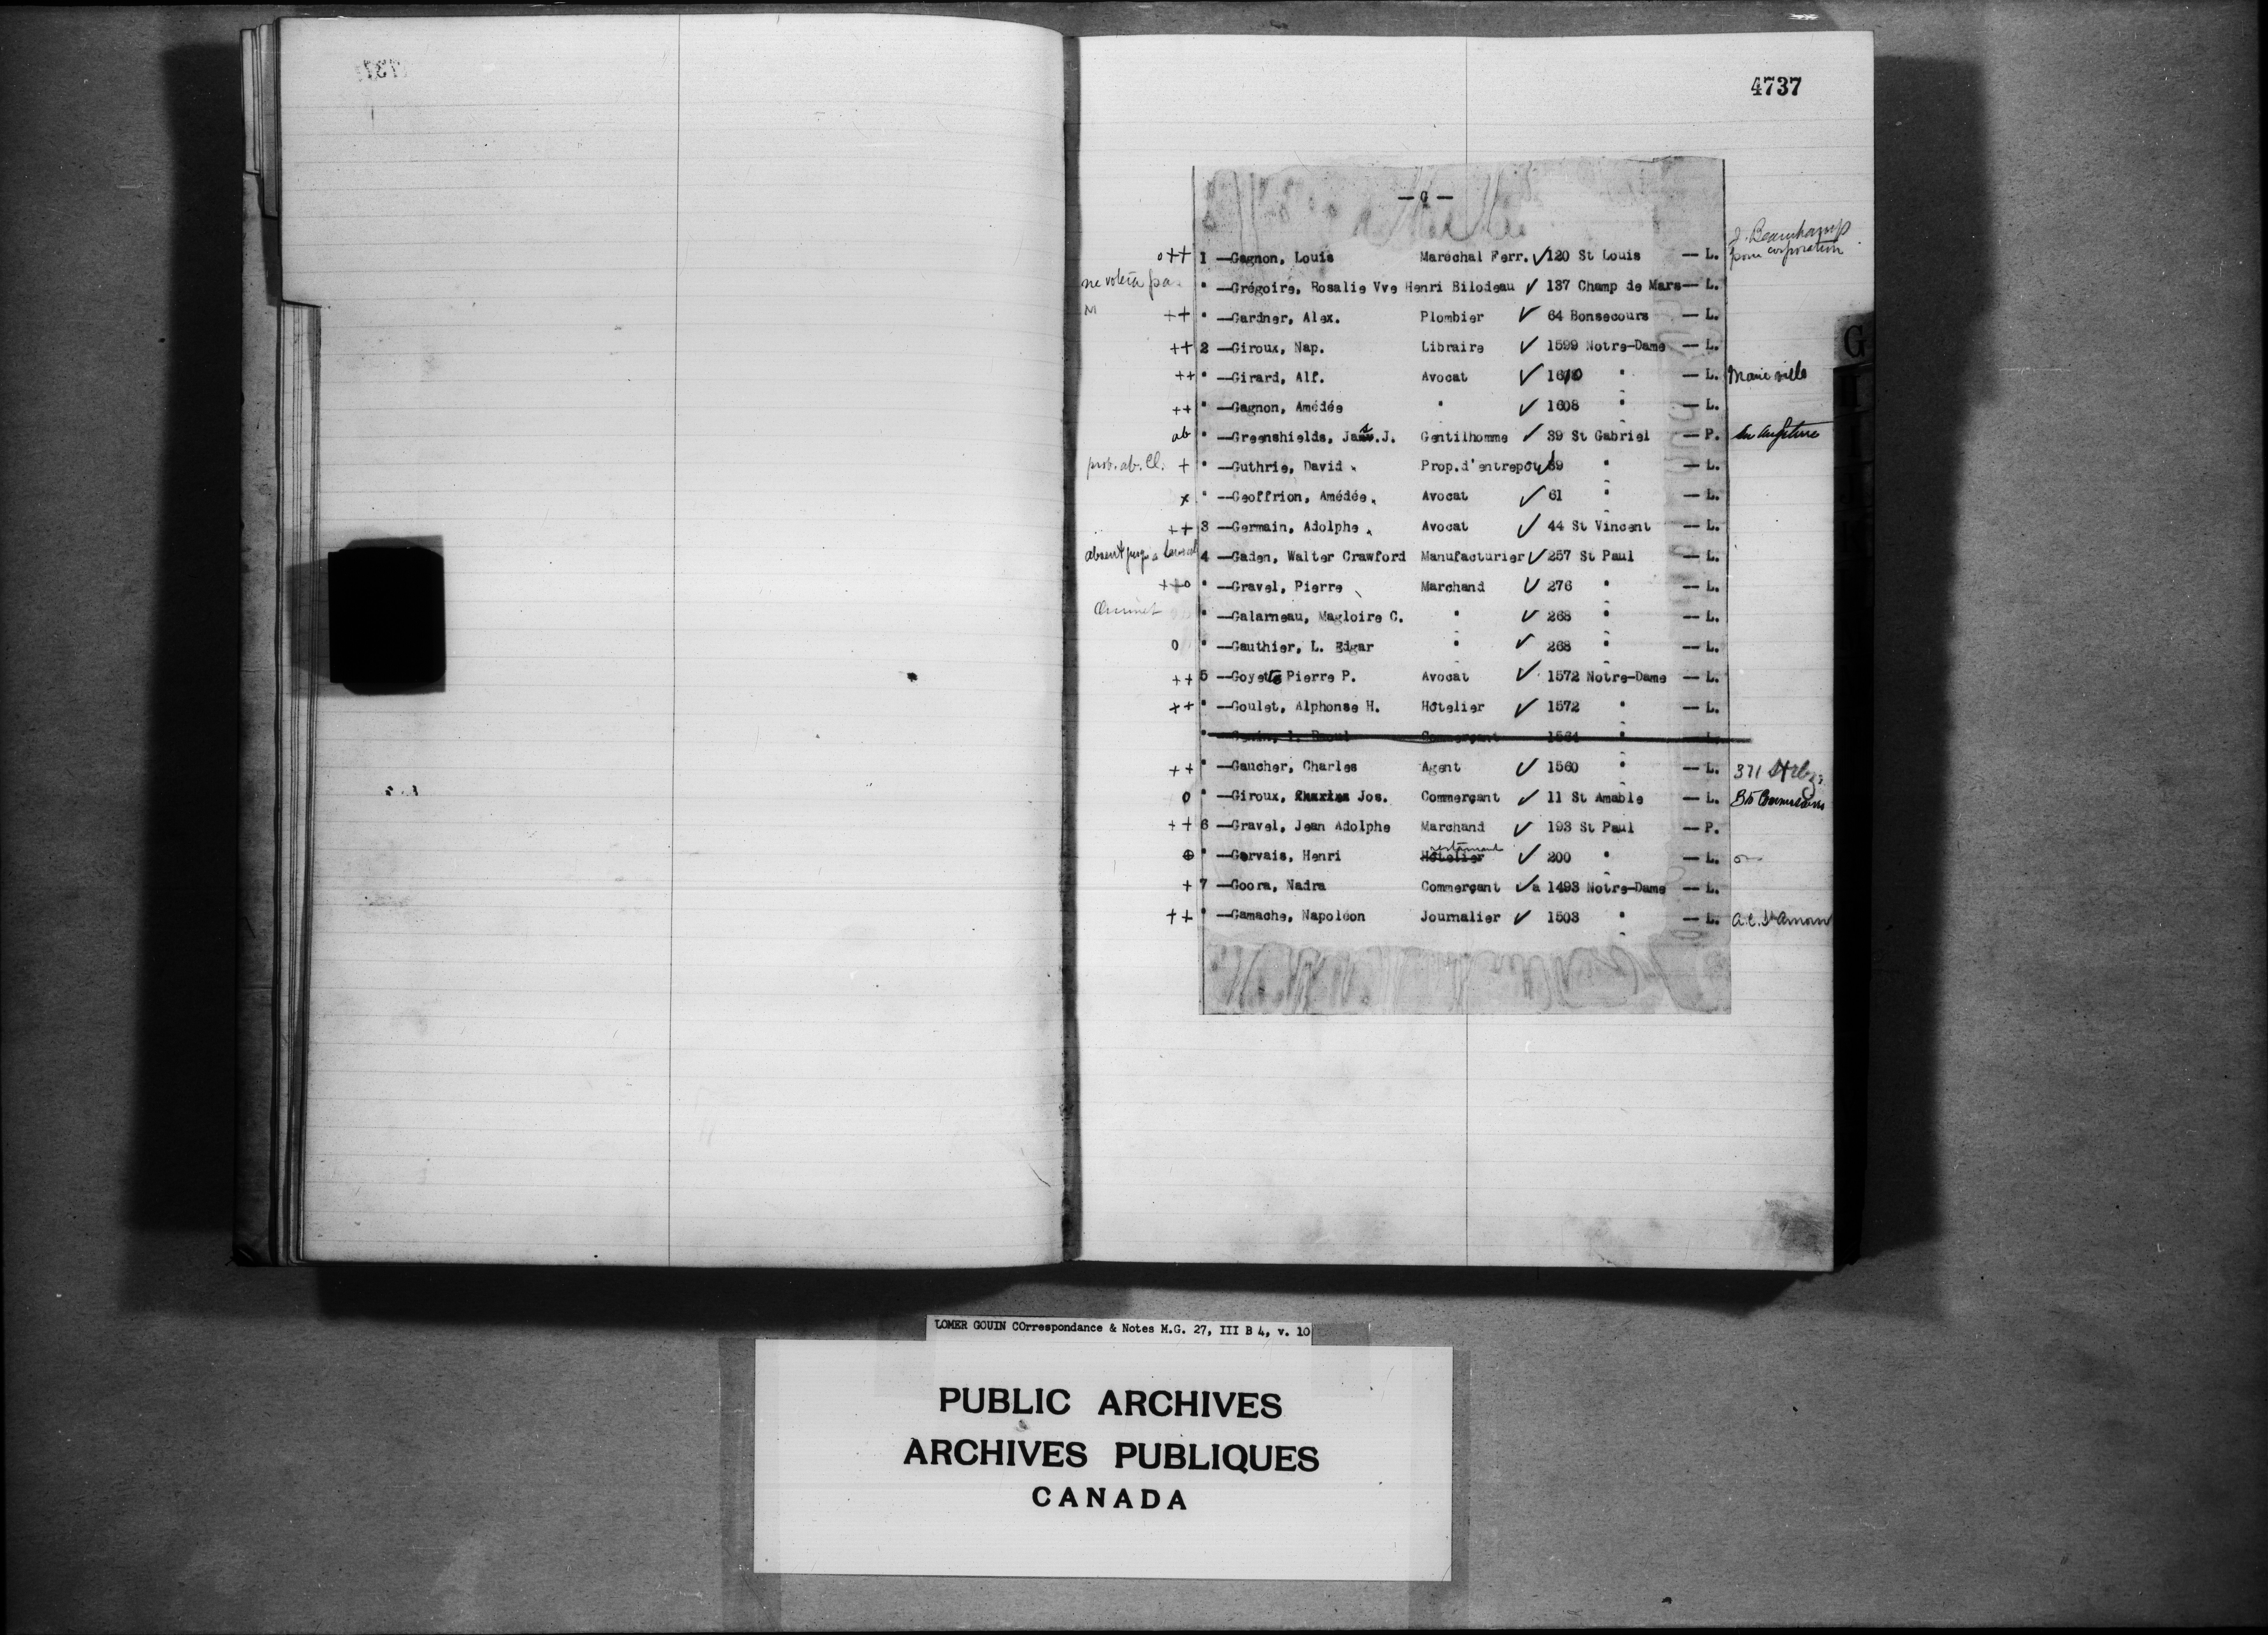 4737
— G —
J. Beauchamp
pour corporation
o++ 1 —Gagnon, Louis Maréchal Ferr. ✓ 120 St Louis — L.
ne votera pas " —Grégoire, Rosalie Vve Henri Bilodeau ✓ 137 Champ de Mars— L.
M ++ " —Gardner, Alex. Plombier ✓ 64 Bonsecours — L.
++ 2 —Giroux, Nap. Libraire ✓ 1599 Notre-Dame — L.
++ " —Girard, Alf. Avocat ✓ 1610 " — L. Marieville
++ " —Gagnon, Amédée " ✓ 1608 " — L.
ab " —Greenshields, Jas.J. Gentilhomme ✓ 39 St Gabriel — P. en Angleterre
prob. ab. Cl. + " —Guthrie, David Prop.d'entrepôt ✓ 39 " — L.
x " —Geoffrion, Amédée. Avocat ✓ 61 " — L.
++ 3 —Germain, Adolphe. Avocat ✓ 44 St Vincent — L.
absent 4 —Gaden, Walter Crawford Manufacturier ✓ 257 St Paul — L.
++o " —Gravel, Pierre Marchand ✓ 276 " — L.
" —Galarneau, Magloire C. " ✓ 268 " — L.
o " —Gauthier, L. Edgar " ✓ 268 " — L.
++ 5 —Goyette Pierre P. Avocat ✓ 1572 Notre-Dame — L.
++ " —Goulet, Alphonse H. Hôtelier ✓ 1572 " — L.
" —Genin, J. Raoul Commerçant 1564 " — L.
++ " —Gaucher, Charles Agent ✓ 1560 " — L. 371
o " —Giroux, Charles Jos. Commerçant ✓ 11 St Amable — L.
++ 6 —Gravel, Jean Adolphe Marchand ✓ 193 St Paul — P.
restaurant
⊕ " —Gervais, Henri Hôtelier ✓ 200 " — L.
+ 7 —Goora, Nadra Commerçant ✓ a 1493 Notre-Dame — L.
++ " —Gamache, Napoléon Journalier ✓ 1503 " — L. A.C. St Amour
G
LOMER GOUIN COrrespondance & Notes M.G. 27, III B 4, v. 10
PUBLIC ARCHIVES
ARCHIVES PUBLIQUES
CANADA